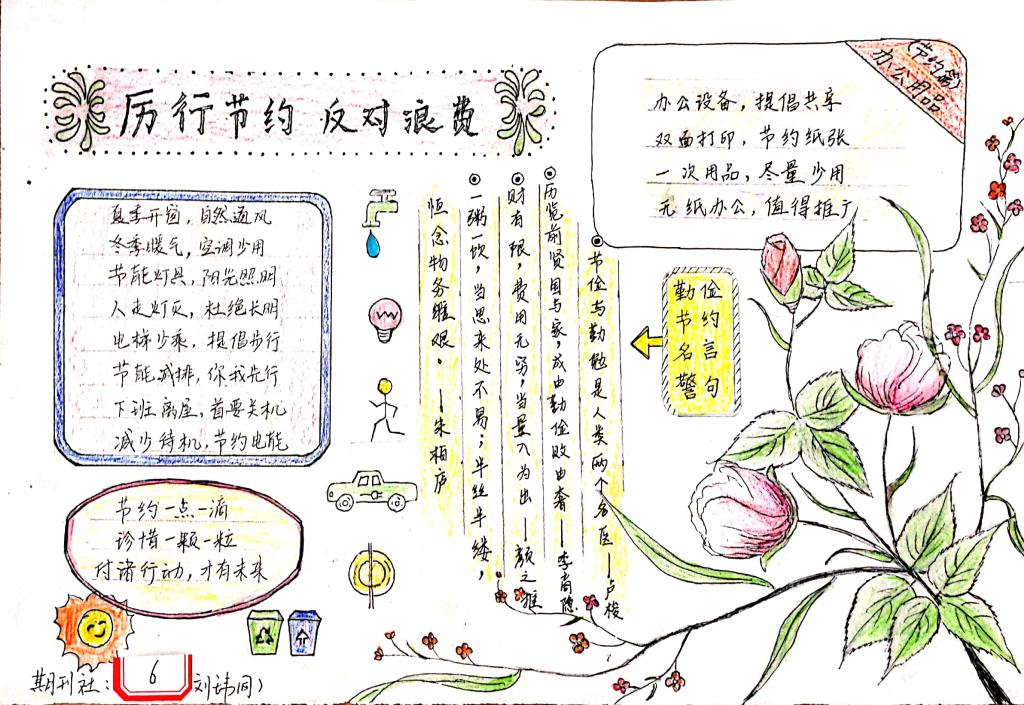 厉行节约 反对浪费
节约办
办公用品
办公设备，提倡共享
双面打印，节约纸张
一次用品，尽量少用
无纸办公，值得推广
夏季开窗，自然通风
冬季暖气，空调少用
节能灯具，阳光照明
人走灯灭，杜绝长明
电梯少乘，提倡步行
节能减排，你我先行
下班离屋，首要关机
减少待机，节约电能
勤俭
节约
名言
警句
节俭与勤勉是人类两个名医——卢梭
历览前贤国与家，成由勤俭败由奢——李商隐
财有限，费用无穷，当量入为出——颜之推
一粥一饮，当思来处不易；半丝半缕，
恒念物务维艰。——朱柏庐
节约一点一滴
珍惜一颗一粒
付诸行动，才有未来
期刊社：
6